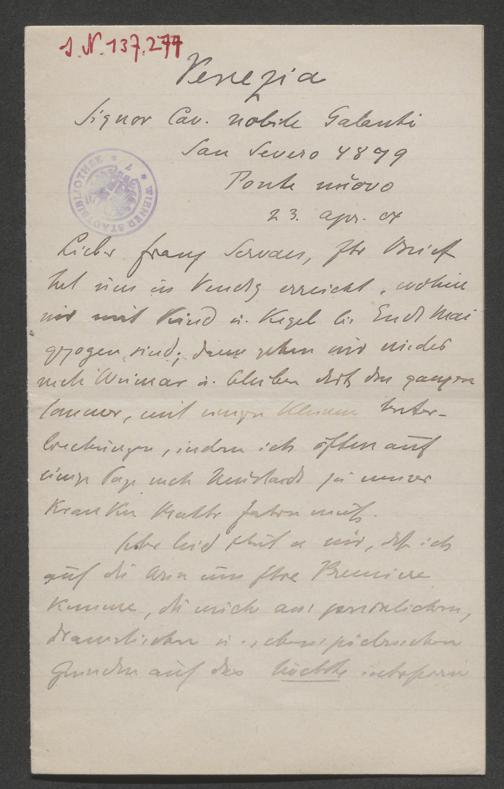 J. N. 137.277
Venezia
Signor Cav. nobile Galanti
San Severo 4879
Ponte nuovo
23. apr. 04
WIENER STADTBIBLIOTHEK
Lieber Franz Servaes, Ihr Brief
hat uns in Venedig erreicht, wohin
wir mit Kind u. Kegel bis Ende Mai
gezogen sind; dann gehen wir wieder
nach Weimar u. bleiben dort den ganzen
Sommer, mit einigen kleinen Unter-
brechungen, indem ich öfter auf
einige Tage nach Neustadt zu meiner
kranken Mutter fahren muß.
Sehr leid thut es mir, daß ich
auf die Art um Ihre Premiere
komme, die mich aus persönlichen,
dramatischen u. schauspielerischen
Gründen auf das höchste